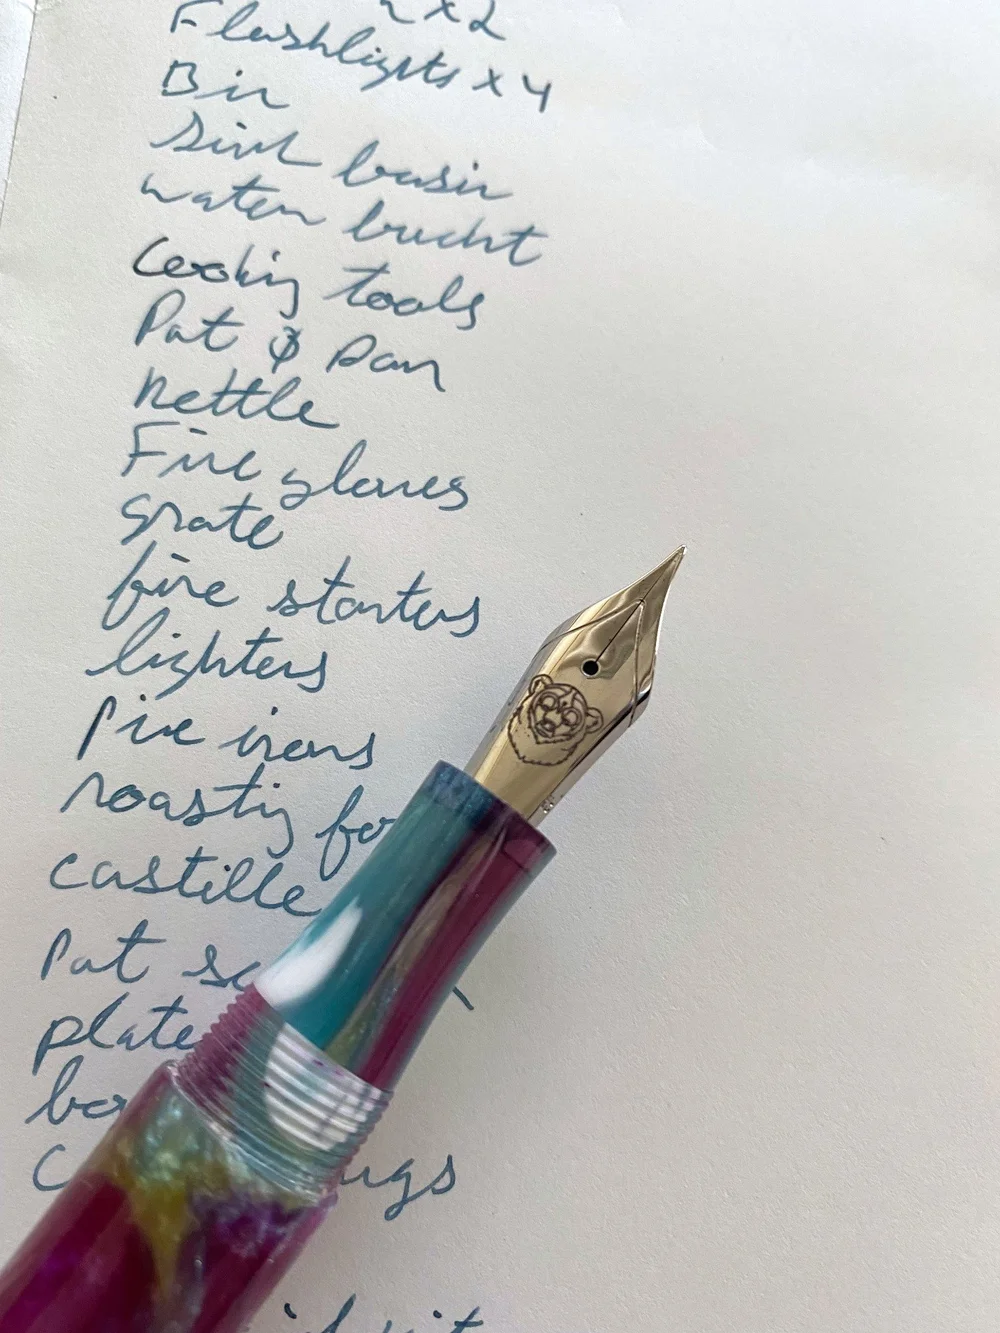 x2
Flashlights x 4
Bin
Sink basin
water bucket
Cooking tools
Pot & Pan
Kettle
Fire gloves
grate
fire starters
lighters
Pie irons
roasting fo
castille
Pot sc
plate
bo
C ugs